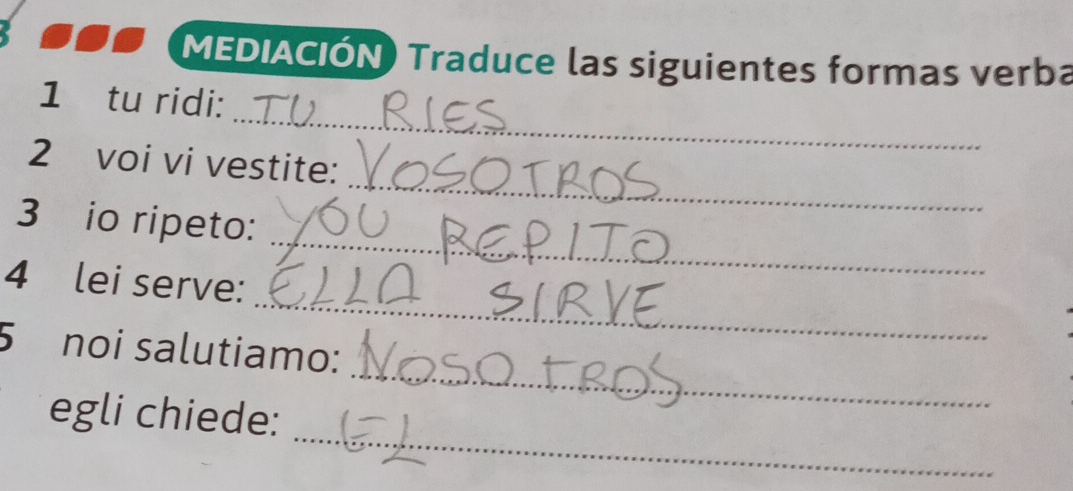 MEDIACIÓN Traduce las siguientes formas verba
1 tu ridi: TU RIES
2 voi vi vestite: VOSOTROS
3 io ripeto: YOU REPITO
4 lei serve: ELLA SIRVE
5 noi salutiamo: NOSOTROS
egli chiede: EL